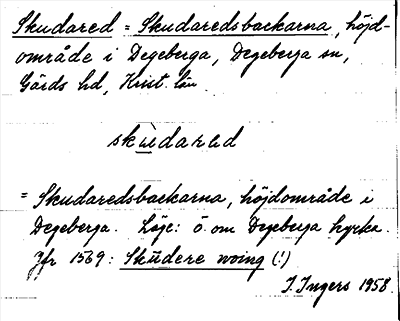 Skudared = Skudaredsbackarna, höjd-
område i Degeberga, Degeberga sn,
Gärds hd, Krist. län
skùdared
= Skudaredsbackarna, höjdområde i
Degeberga. Läge: ö. om Degeberga kyrka.
Jfr 1569: Skudere woing (!)
I. Ingers 1958.